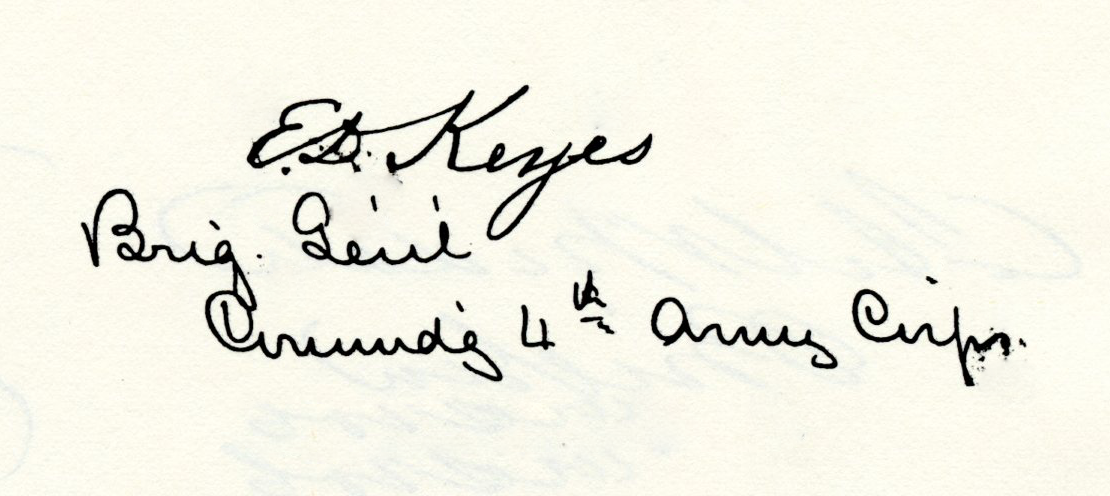 E.D. Keyes
Brig. Gen'l
Commd'g 4th Army Corps.